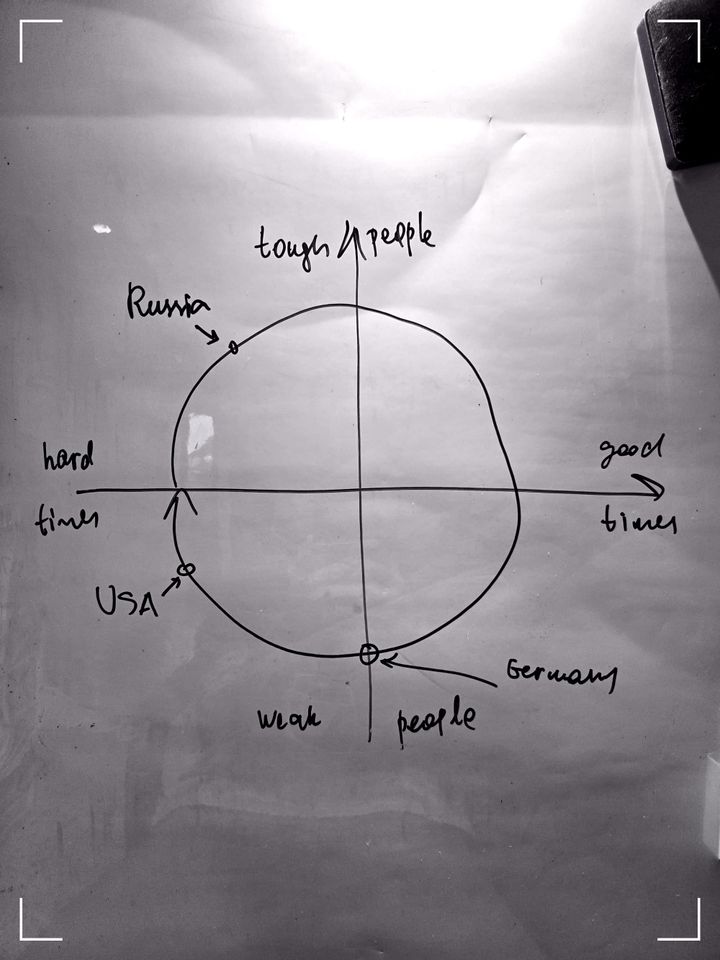 tough people
Russia
hard
times
good
times
USA
Germany
weak people